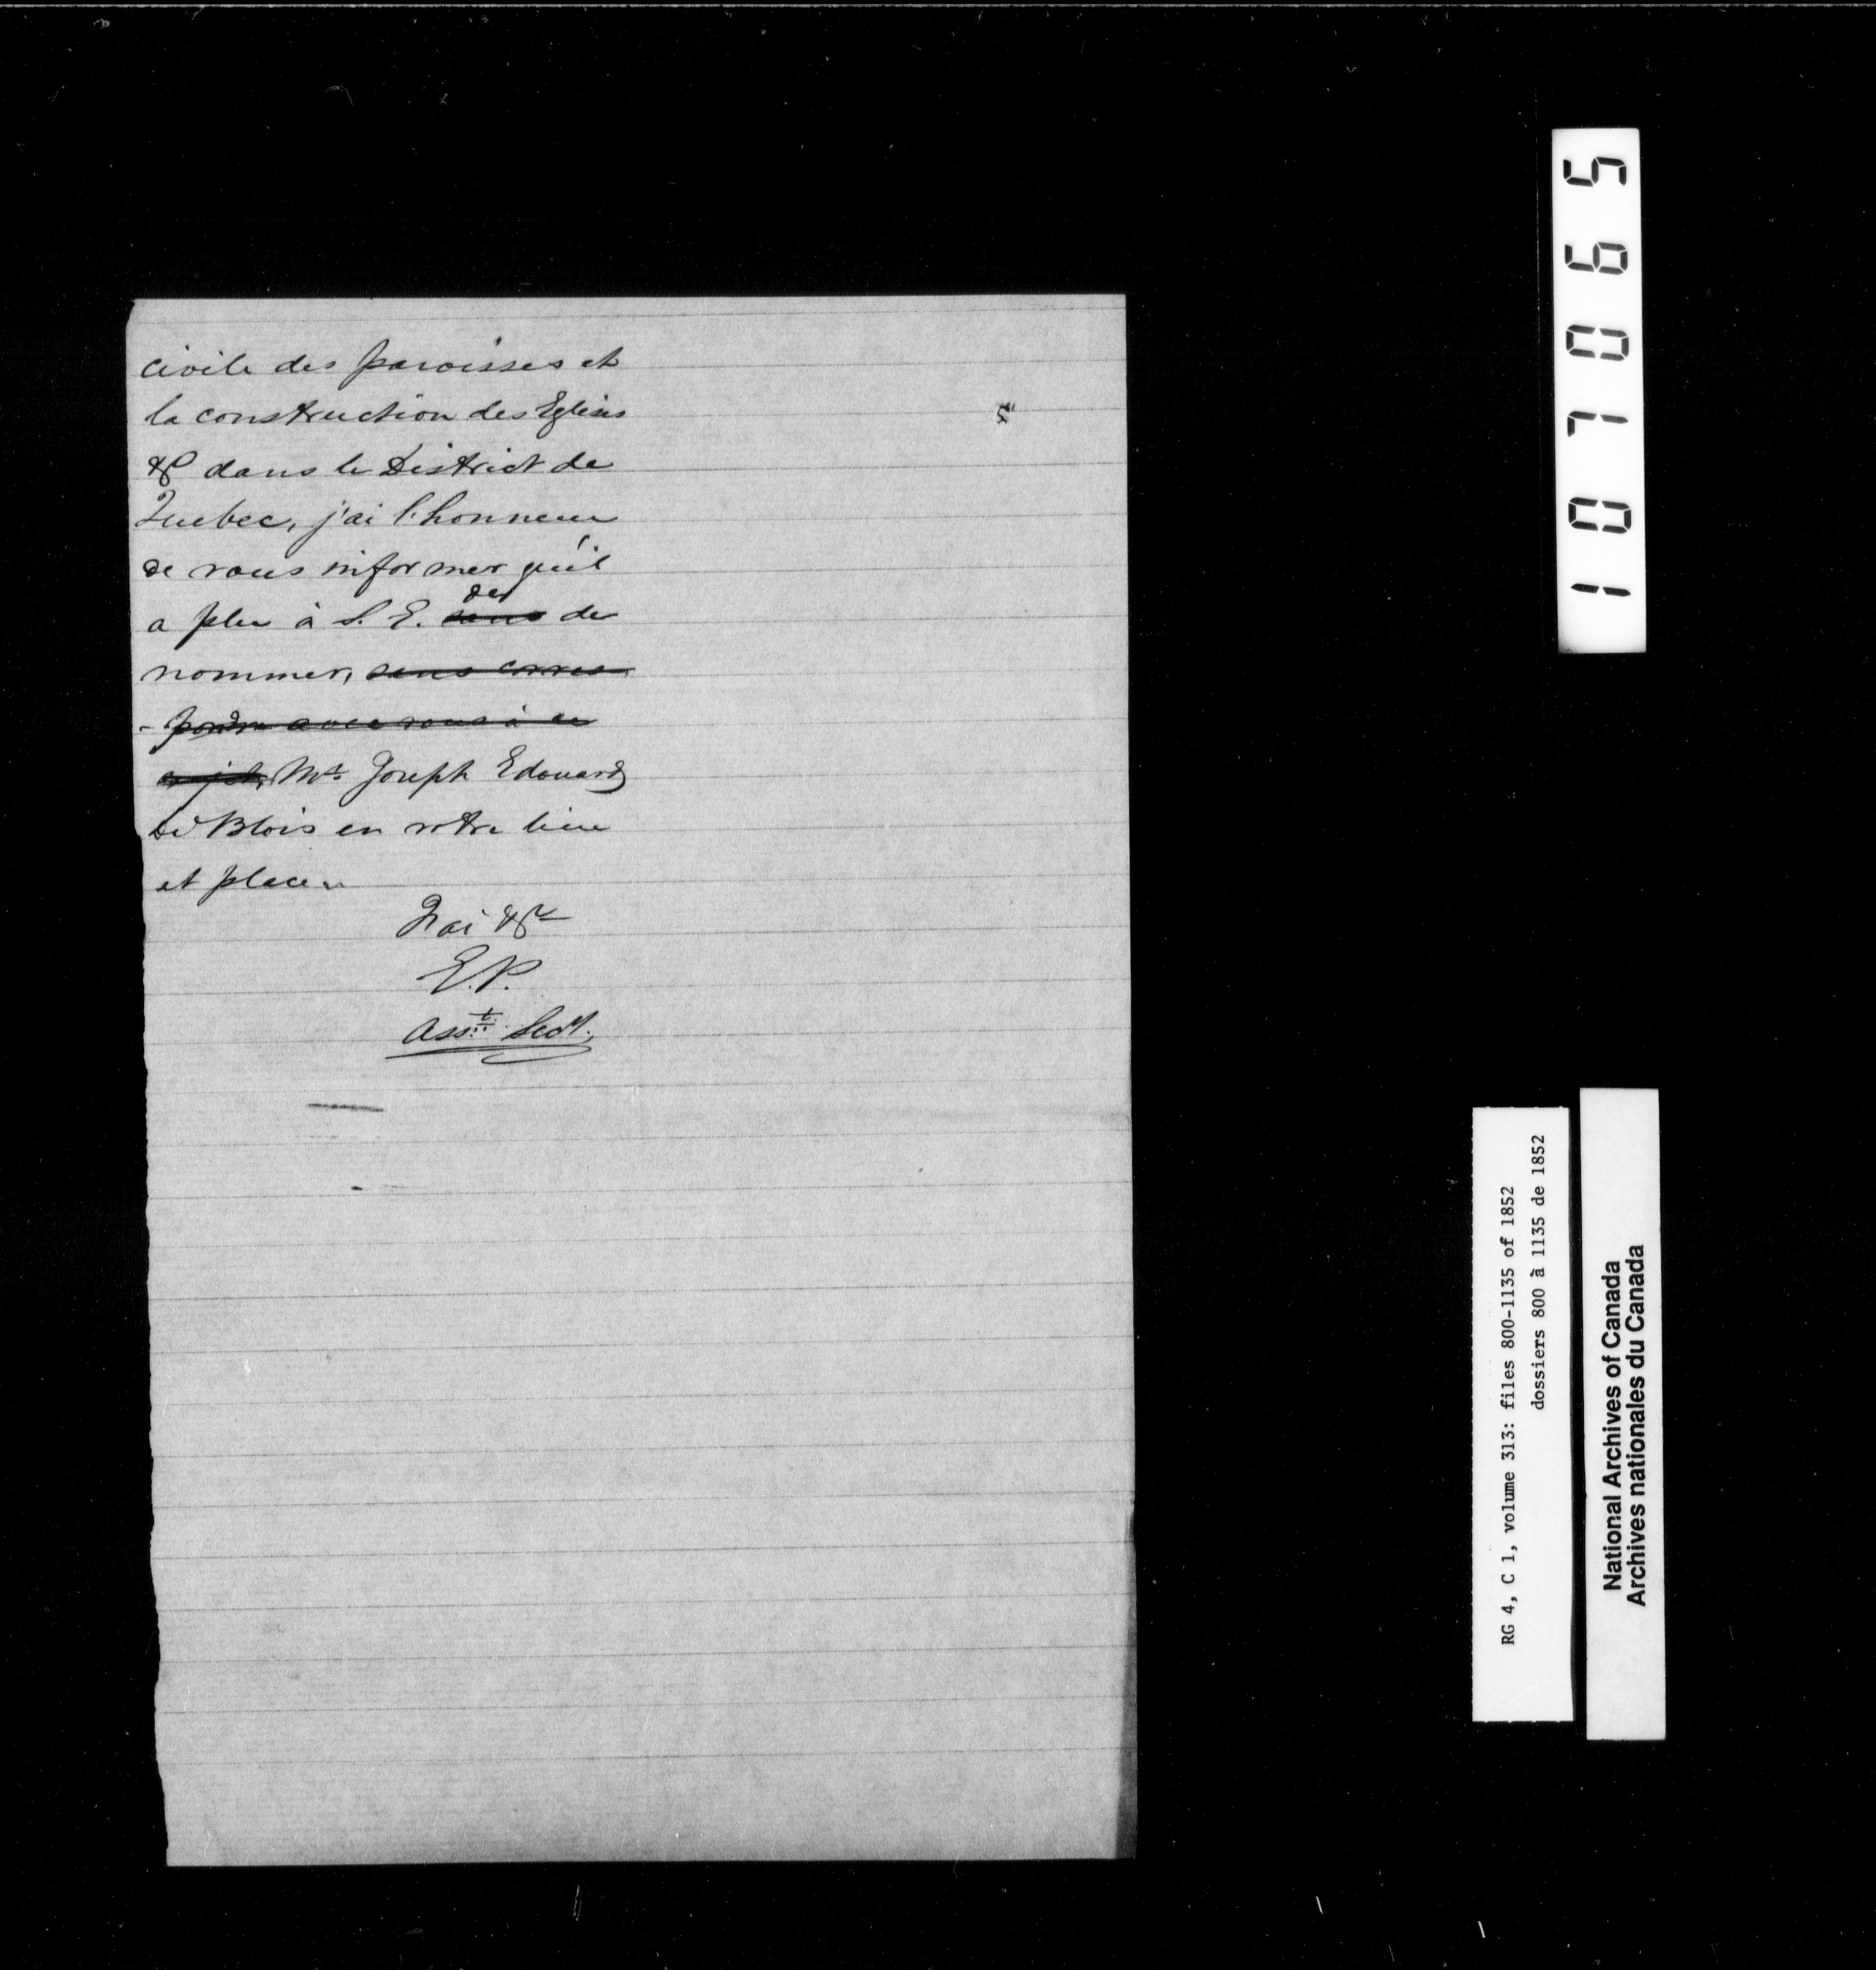 civile des paroisses et
la construction des Eglises
&c dans le District de
Quebec, j'ai l'honneur
de vous informer qu'il
a plu à S. E. sans de
nommer, sans corres
- pondre avec vous à ce
sujet, Mr. Joseph Edouard
De Blois en votre lieu
et place.
J'ai &c
E.P.
Asst. Secy.
5
107065
RG 4, C 1, volume 313: files 800-1135 of 1852
dossiers 800 à 1135 de 1852
National Archives of Canada
Archives nationales du Canada